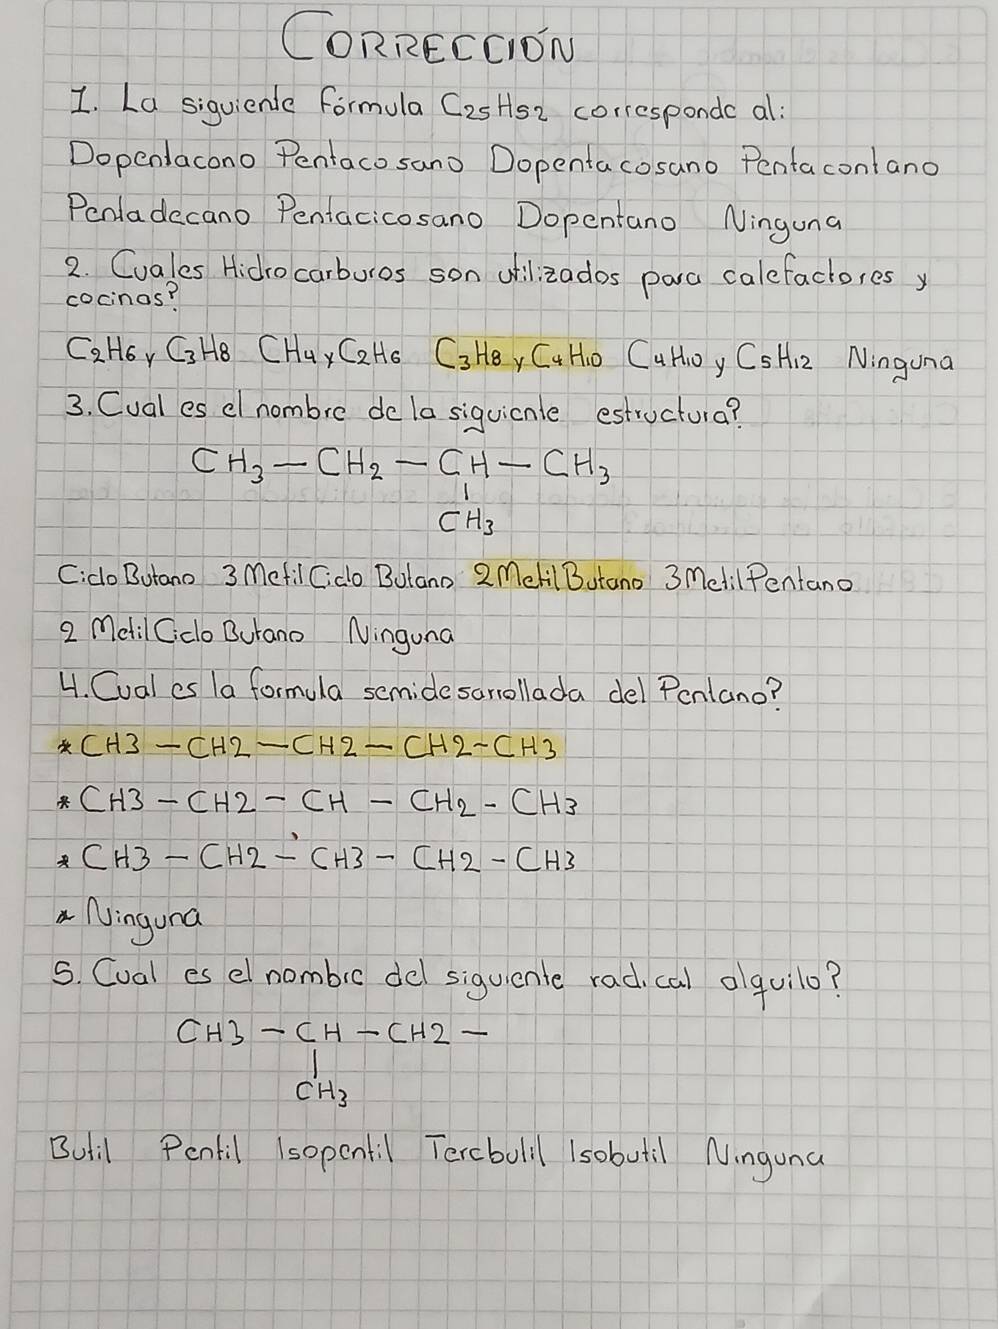 CORRECCIÓN
1. La siguiente fórmula C25H52 corresponde al:
Dopentacono Pentacosano Dopentacosano Pentacontano
Pentadecano Pentacicosano Dopentano Ninguna
2. Cuales Hidrocarburos son utilizados para calefactores y
cocinas?
C2H6 y C3H8 CH4 y C2H6 C3H8 y C4H10 C4H10 y C5H12 Ninguna
3. Cual es el nombre de la siguiente estructura?
CH3 — CH2 — CH — CH3
|
CH3
Ciclo Butano 3 Metil Ciclo Butano 2 Metil Butano 3 Metil Pentano
2 Metil Ciclo Butano Ninguna
4. Cual es la formula semidesarrollada del Pentano?
* CH3 — CH2 — CH2 — CH2 - CH3
* CH3 - CH2 - CH - CH2 - CH3
* CH3 - CH2 - CH3 - CH2 - CH3
* Ninguna
5. Cual es el nombre del siguiente radical alquilo?
CH3 - CH - CH2 -
|
CH3
Butil Pentil Isopentil Tercbutil Isobutil Ninguna